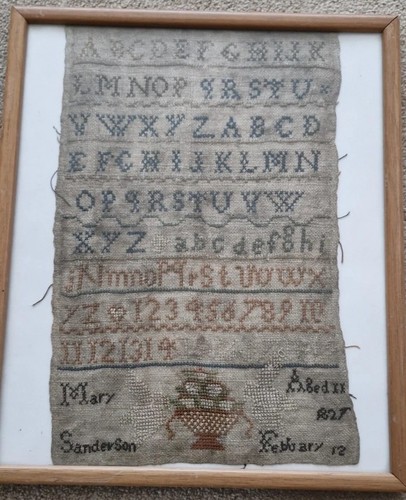 A B C D E F G H I J K
L M N O P q R S T U
V W X Y Z A B C D
E F G H I J K L M N
O P q R S T U V W
X Y Z a b c d e f g h i
m n o p q r s t u v w x
y z 1 2 3 4 5 6 7 8 9 10
11 12 13 14
Mary Aged 11
1827
Sanderson Febuary 12